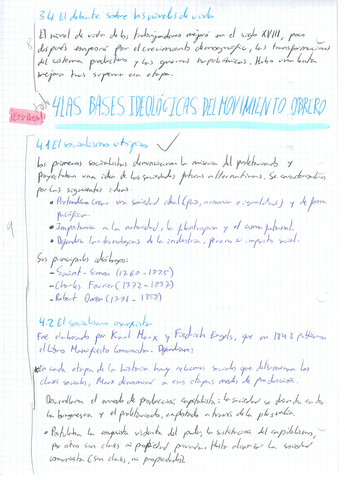 3.4 El debate sobre los niveles de vida
El nivel de vida de los trabajadores mejoró en el siglo XVIII, pero
después empeoró por el crecimiento demográfico, las transformaciones
del sistema productivo y las guerras napoleónicas. Hubo una lenta
mejora tras superar esa etapa.
4 LAS BASES IDEOLÓGICAS DEL MOVIMIENTO OBRERO
4.1 El socialismo utópico
Los primeros socialistas denunciaron la miseria del proletariado y
proyectaban una idea de las sociedades futuras alternativas. Se caracterizaban
por las siguientes ideas:
• Pretendían crear una sociedad ideal (paz, armonía e igualdad) y de forma
pacífica.
• Importancia a la solidaridad, la filantropía y el amor fraternal.
• Defendía las tecnologías de la industria, pero no su impacto social.
Sus principales ideólogos:
- Saint-Simon (1760-1825)
- Charles Fourier (1772-1837)
- Robert Owen (1771-1858)
4.2 El socialismo marxista
Fue elaborado por Karl Marx y Friedrich Engels, que en 1848 publicaron
el libro Manifiesto Comunista. Defendían:
En cada etapa de la historia hay relaciones sociales que determinan las
clases sociales, Marx denominó a esas etapas modos de producción.
Desarrollaron el modo de producción capitalista: la sociedad se divide entre
la burguesía y el proletariado, explotado a través de la plusvalía
• Postulaba la conquista violenta del poder, la sustitución del capitalismo,
por otro sin clases ni propiedad privada. Hasta alcanzar la sociedad
comunista (sin clases, ni propiedades).
9